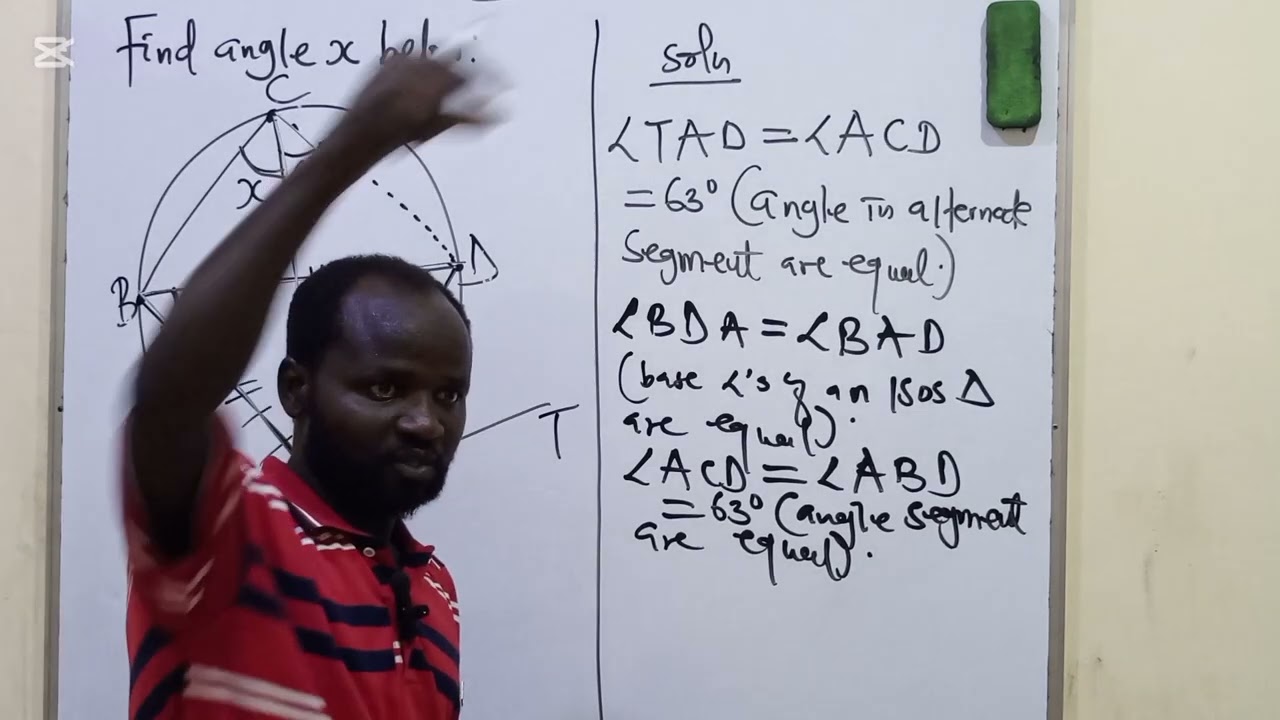 Find angle x
C
x
B
D
T
soln
∠TAD = ∠ACD
= 63° (angle in alternate
segment are equal.)
∠BDA = ∠BAD
(base ∠'s of an Isos Δ
are equal).
∠ACD = ∠ABD
= 63° (angle segment
are equal).